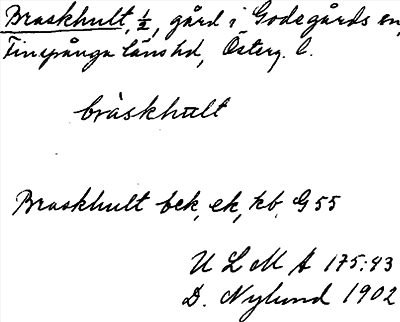 Braskhult, ½, gård i Godegårds sn,
Finspånga läns hd, Österg. l.
bråskhult
Braskhult bek, ek, kb, G 55
U L M A 175:43
D. Nylund 1902